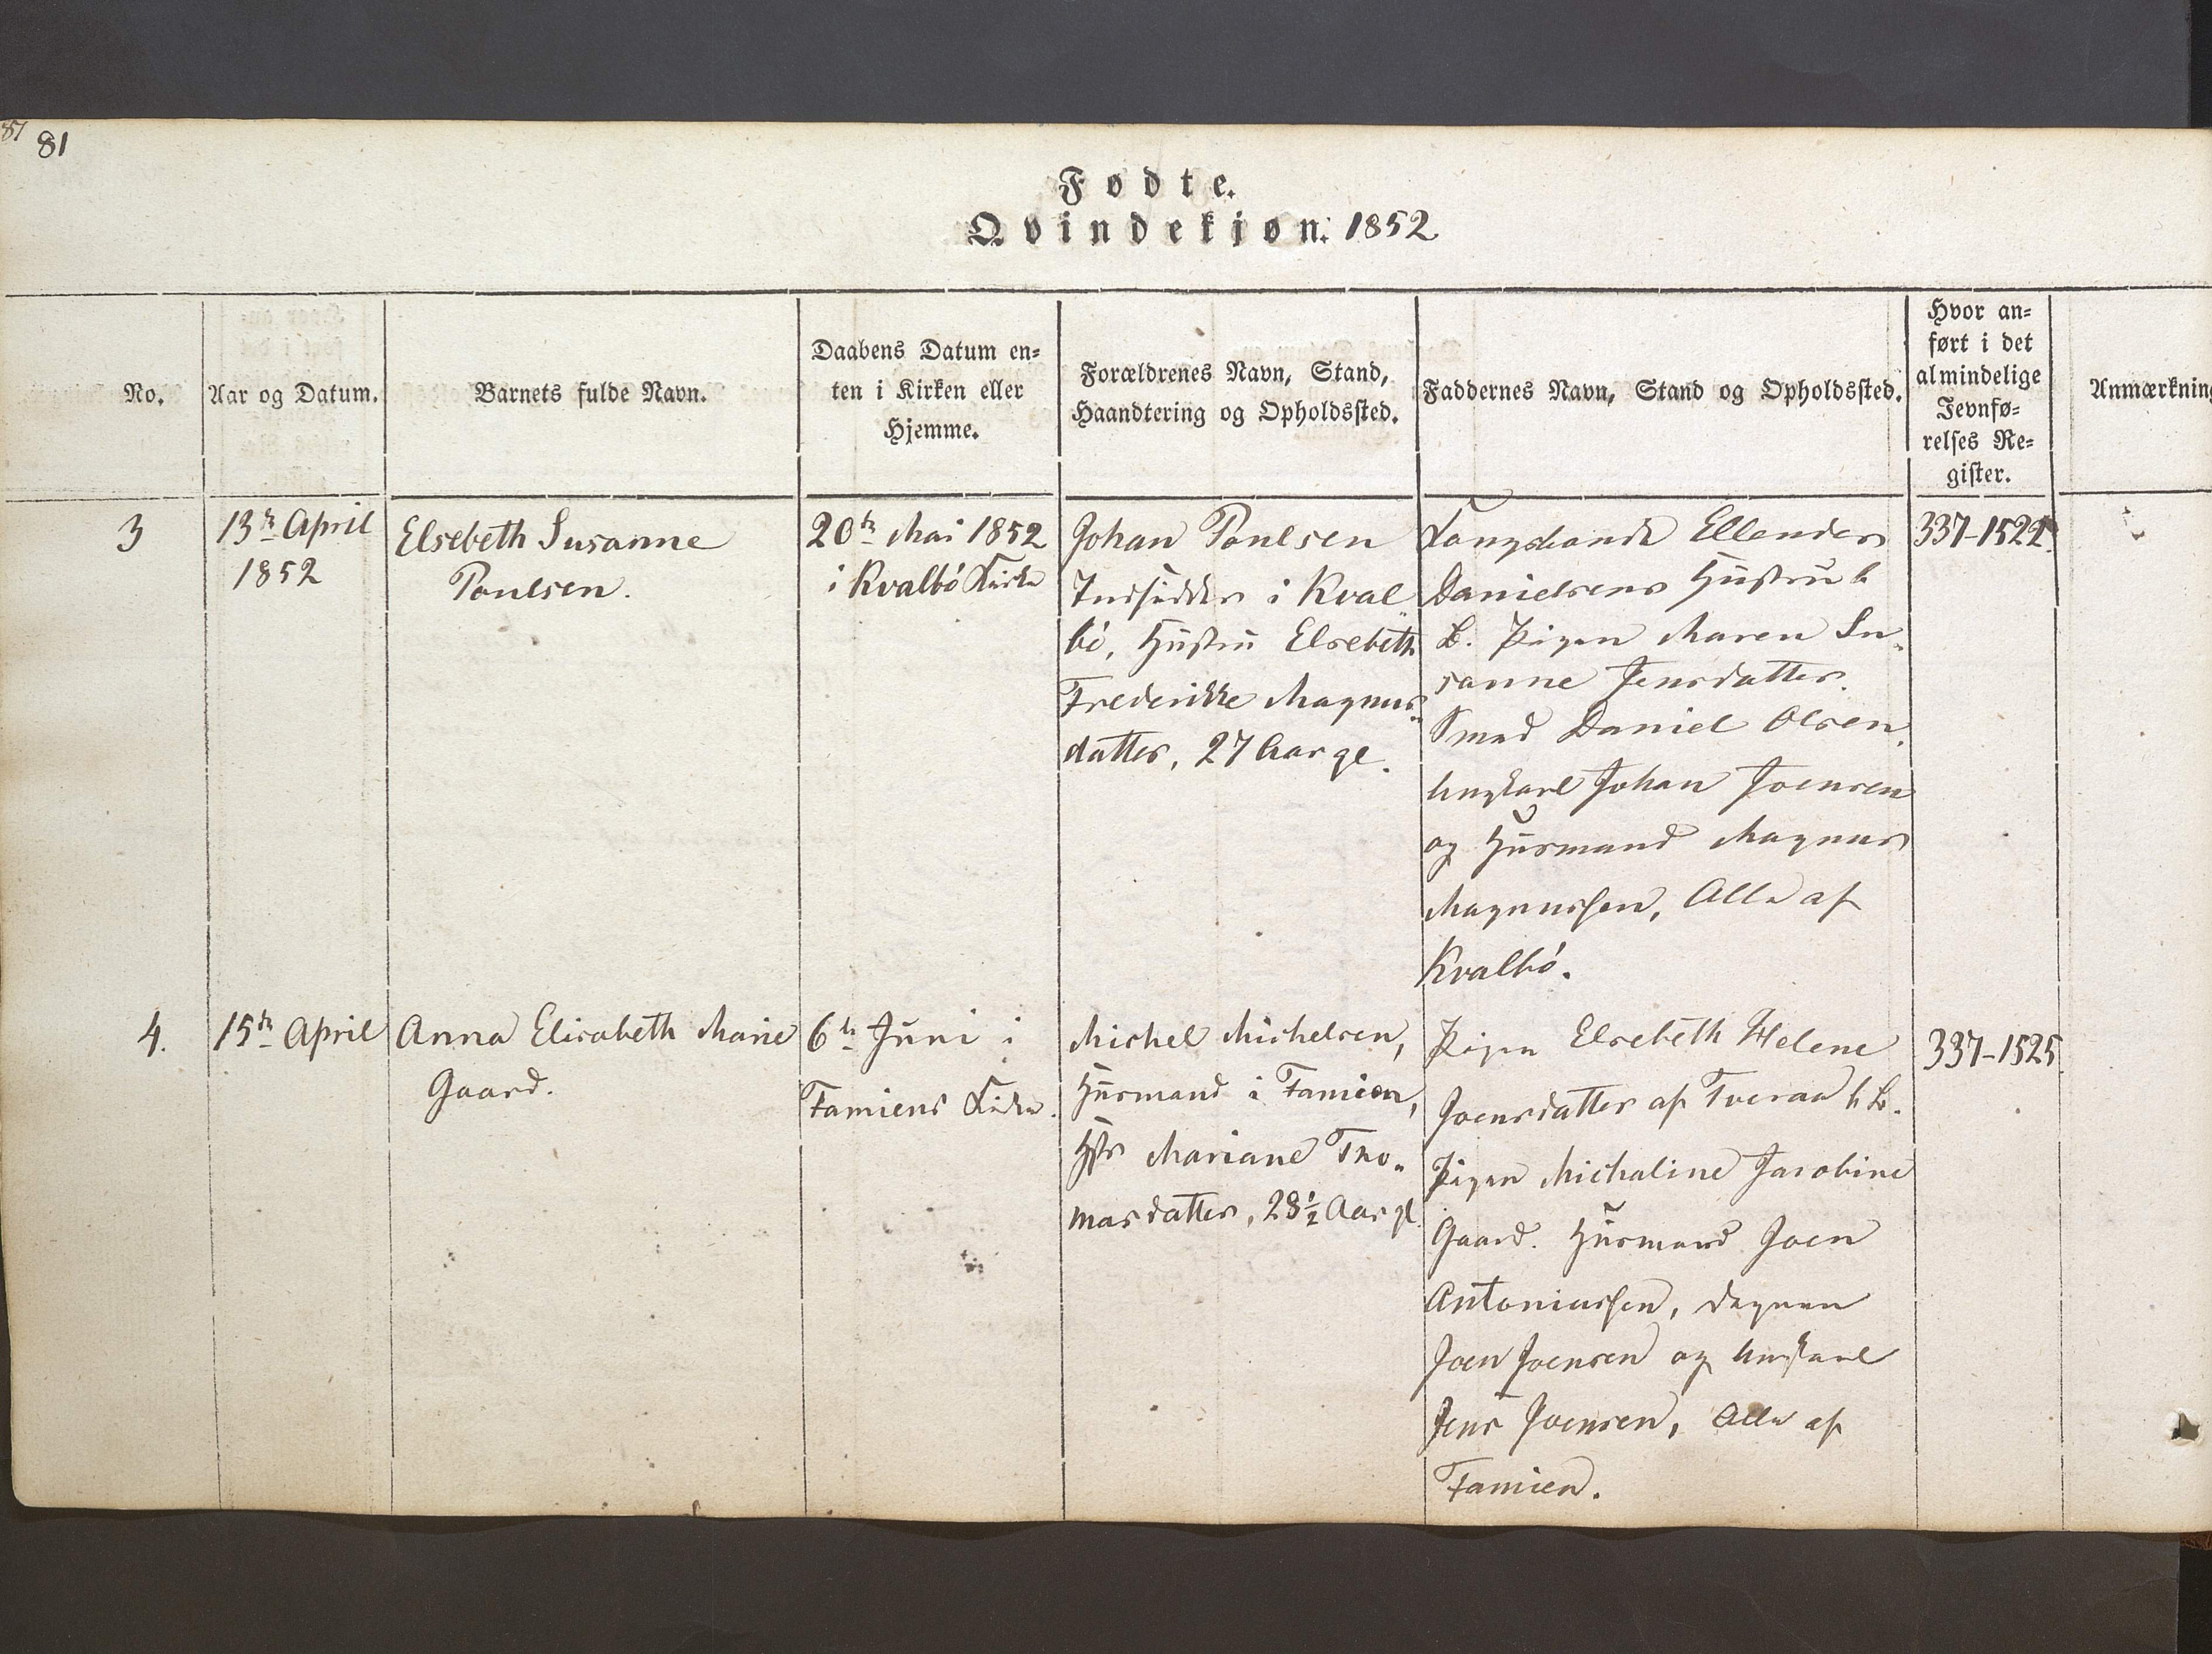 81
81
Fødte.
Qvindekjøn. 1852
No.
Aar og Datum.
Barnets fulde Navn.
Daabens Datum en-
ten i Kirken eller
Hjemme.
Forældrenes Navn, Stand,
Haandtering og Opholdssted.
Faddernes Navn, Stand og Opholdssted.
Hvor an-
ført i det
almindelige
Jevnfø-
relses Re-
gister.
Anmærkning
3
13de April
1852
Elsebeth Susanne
Poulsen.
20de Mai 1852
i Kvalbö Kirke
Johan Poulsen
Indsidder i Kval
bö, Hustru Elsebeth
Frederikke Magnus-
datter, 27 Aar gl.
Ellender
Danielsens Hustru b
B. Pigen Maren Su-
sanne Jensdatter.
Smed Daniel Olsen,
Ungkarl Johan Joensen
og Husmand Magnus
Magnussen, Alle af
Kvalbö.
337-1522.
4.
15de April
Anna Elisabeth Marie
Gaard.
6te Juni i
Famiens Kirke.
Michel Michelsen,
Husmand i Famien,
Hstr Mariane Tho-
masdatter, 28½ Aar gl.
Pigen Elsebeth Helene
Joensdatter af Tveraa b B.
Pigen Michaline Jacobine
Gaard. Husmand Joen
Antoniussen, Degnen
Joen Joensen og Ungkarl
Jens Joensen, Alle af
Famien.
337-1525.